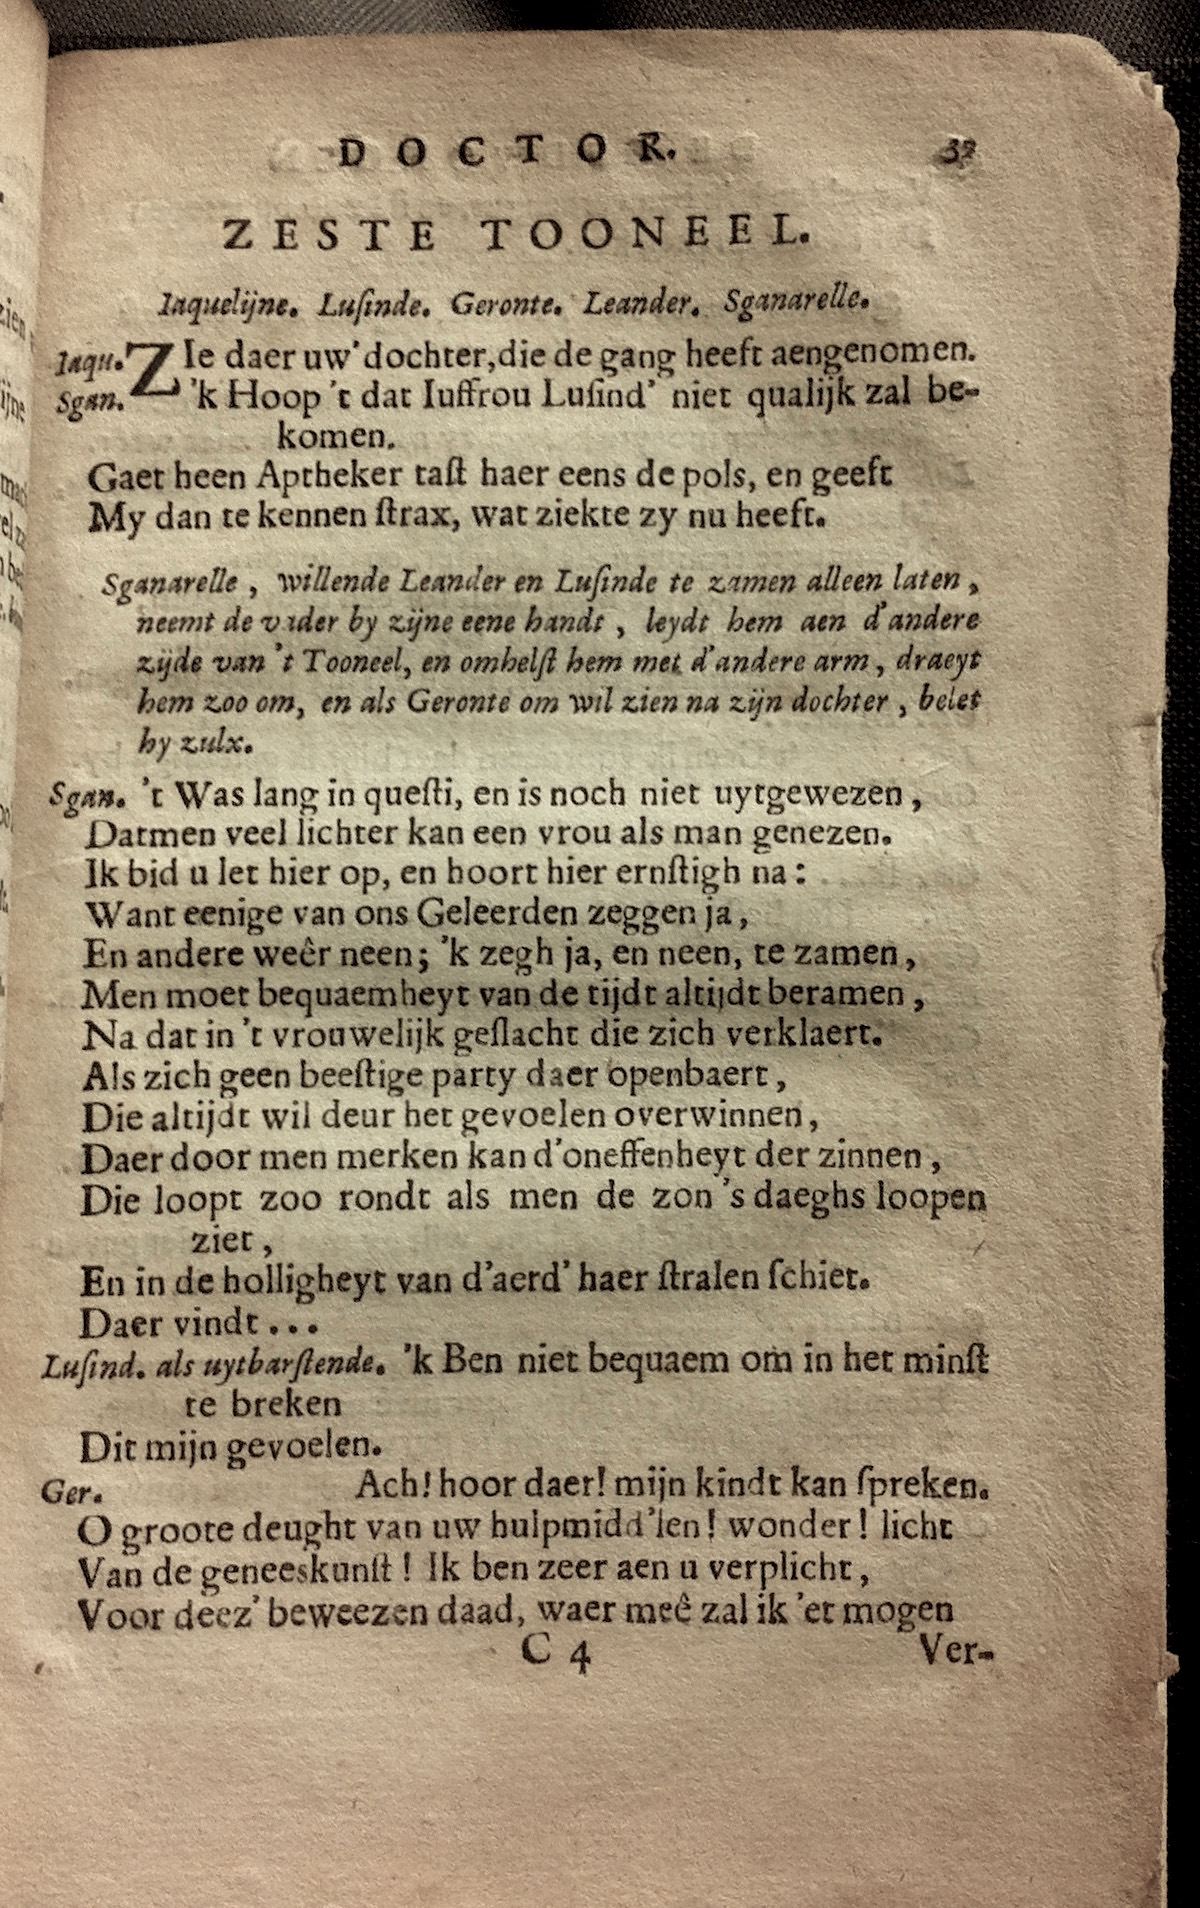 DOCTOR. 39
ZESTE TOONEEL.
Iaquelijne. Luſinde. Geronte. Leander. Sganarelle.
Iaqu. ZIe daer uw' dochter, die de gang heeft aengenomen.
Sgan. 'k Hoop 't dat Iuffrou Luſind' niet qualijk zal be-
komen.
Gaet heen Aptheker taſt haer eens de pols, en geeft
My dan te kennen ſtrax, wat ziekte zy nu heeft.
Sganarelle, willende Leander en Luſinde te zamen alleen laten,
neemt de vader by zijne eene handt, leydt hem aen d'andere
zijde van 't Tooneel, en omhelſt hem met d'andere arm, draeyt
hem zoo om, en als Geronte om wil zien na zijn dochter, belet
hy zulx.
Sgan. 't Was lang in queſti, en is noch niet uytgewezen,
Datmen veel lichter kan een vrou als man genezen.
Ik bid u let hier op, en hoort hier ernſtigh na:
Want eenige van ons Geleerden zeggen ja,
En andere weêr neen; 'k zegh ja, en neen, te zamen,
Men moet bequaemheyt van de tijdt altijdt beramen,
Na dat in 't vrouwelijk geſlacht die zich verklaert.
Als zich geen beeſtige party daer openbaert,
Die altijdt wil deur het gevoelen overwinnen,
Daer door men merken kan d'oneffenheyt der zinnen,
Die loopt zoo rondt als men de zon 's daeghs loopen
ziet,
En in de holligheyt van d'aerd' haer ſtralen ſchiet.
Daer vindt...
Luſind. als uytbarſtende. 'k Ben niet bequaem om in het minſt
te breken
Dit mijn gevoelen.
Ger. Ach! hoor daer! mijn kindt kan ſpreken.
O groote deught van uw hulpmidd'len! wonder! licht
Van de geneeskunſt! Ik ben zeer aen u verplicht,
Voor deez' beweezen daad, waer meê zal ik 'et mogen
C 4 Ver-